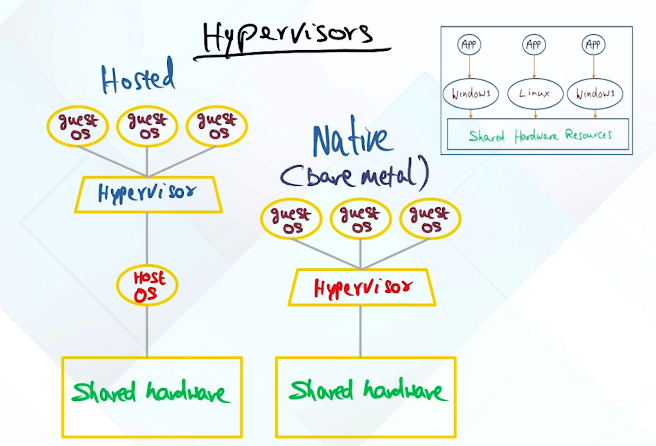 Hypervisors
Hosted
guest
OS
guest
OS
guest
OS
Hypervisor
Host
OS
Shared hardware
Native
(bare metal)
guest
OS
guest
OS
guest
OS
Hypervisor
Shared hardware
App
App
App
Windows
Linux
Windows
Shared Hardware Resources